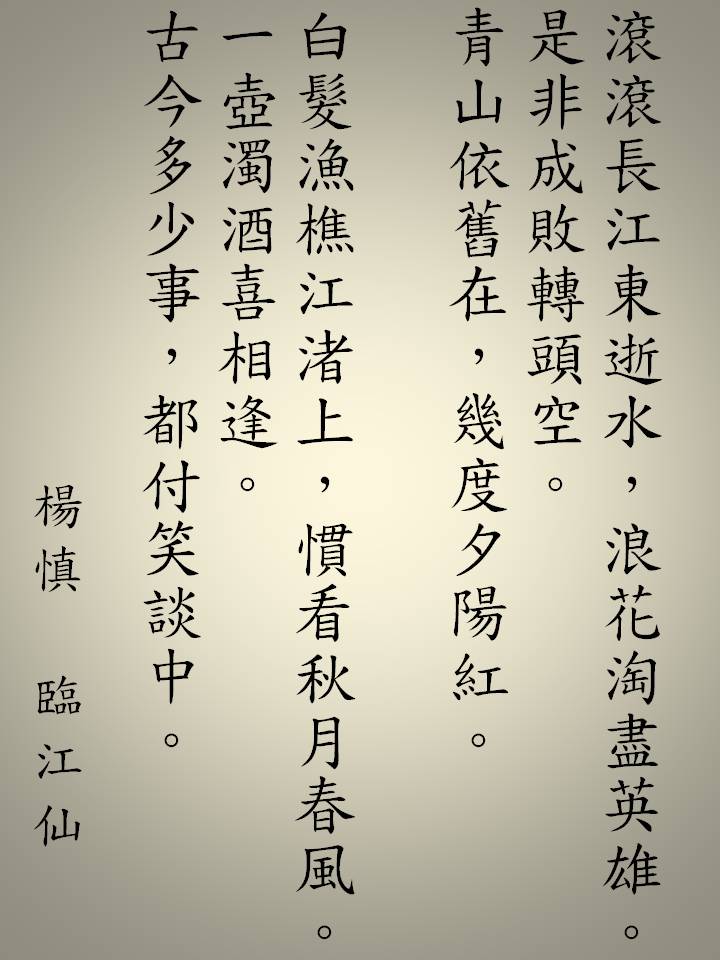 滾滾長江東逝水，浪花淘盡英雄。
是非成敗轉頭空。
青山依舊在，幾度夕陽紅。
白髮漁樵江渚上，慣看秋月春風。
一壺濁酒喜相逢。
古今多少事，都付笑談中。
楊慎　臨江仙